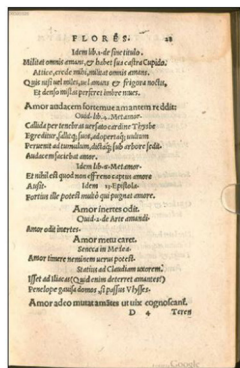 FLORES. 28
Idem lib.1. de sine titulo.
Militat omnis amans, et habet sua castra Cupido.
Attice, crede mihi, militat omnis amans.
Quis nisi vel miles, vel amans et frigora noctis,
Et denso mistas perferet imbre nives.
Amor audacem fortemque amantem reddit:
Ovid. lib.4. Metamor.
Callida per tenebras versato cardine Thysbe
Egreditur, fallitque suos, adopertaque vultum
Pervenit ad tumulum, dictaque sub arbore sedit.
Audacem faciebat amor.
Idem lib.8. Metamor.
Et nihil est quod non effreno captus amore
Ausit. Idem 15. Epistola.
Fortius ille potest multo qui pugnat amore.
Amor inertes odit.
Ovid. 2. de Arte amandi.
Amor odit inertes.
Amor metu caret.
Seneca in Medea.
Amor timere neminem verus potest.
Statius ad Claudiam uxorem.
Isset ad Iliacas (Quid enim deterret amantes?)
Penelope gavisa domos, si passus Ulysses.
Amor adeo mutat amantes ut vix cognoscant.
D 4 Teren
Google